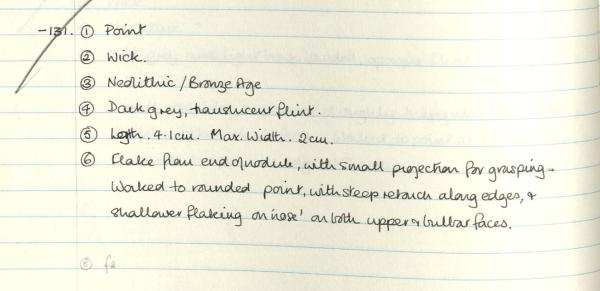 -131. ① Point
② Wick.
③ Neolithic / Bronze Age
④ Dark grey, translucent flint.
⑤ Lgth. 4.1cm. Max. Width. 2cm.
⑥ Flake from end of nodule, with small projection for grasping.
Worked to rounded point, with steep retouch along edges, &
shallower flaking on 'nose' on both upper & bulbar faces.